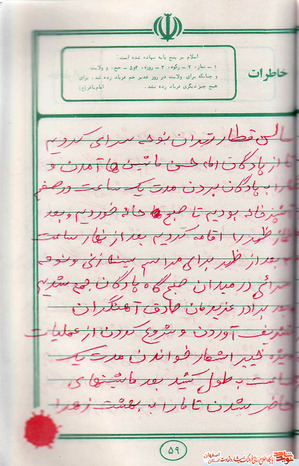 خاطرات
اسلام بر پنج پایه نهاده شده است
۱ – نماز، ۲ – زکوة، ۳ – روزه، ۴ – حج، و ولایت
و چنانکه برای ولایت در روز غدیر خم فریاد زده شد، برای
هیچ چیز دیگری فریاد زده نشد
سالن قطار تهران نوحه سرای کردیم
تا از پادگان امام حسن ماشین ها آمدن و
ما را به پادگان بردن مدت یک ساعت و نصفی
بودیم تا صبح خوردیم و بعد
نماز ظهر را اقامه کردیم بعد از نهار ساعت
بعد از ظهر برای مراسم سینه زنی و نوحه
سرائی در میدان صبح گاه پادگان جمع شدیم
برادر عزیزمان صادق آهنگران
تشریف آوردن و شروع کردن از عملیات
خیبر اشعار خواندن مدت یک
ساعت بطول کشید بعد ماشینهای
حاضر شدن تا ما را به بهشت زهرا
۵۹